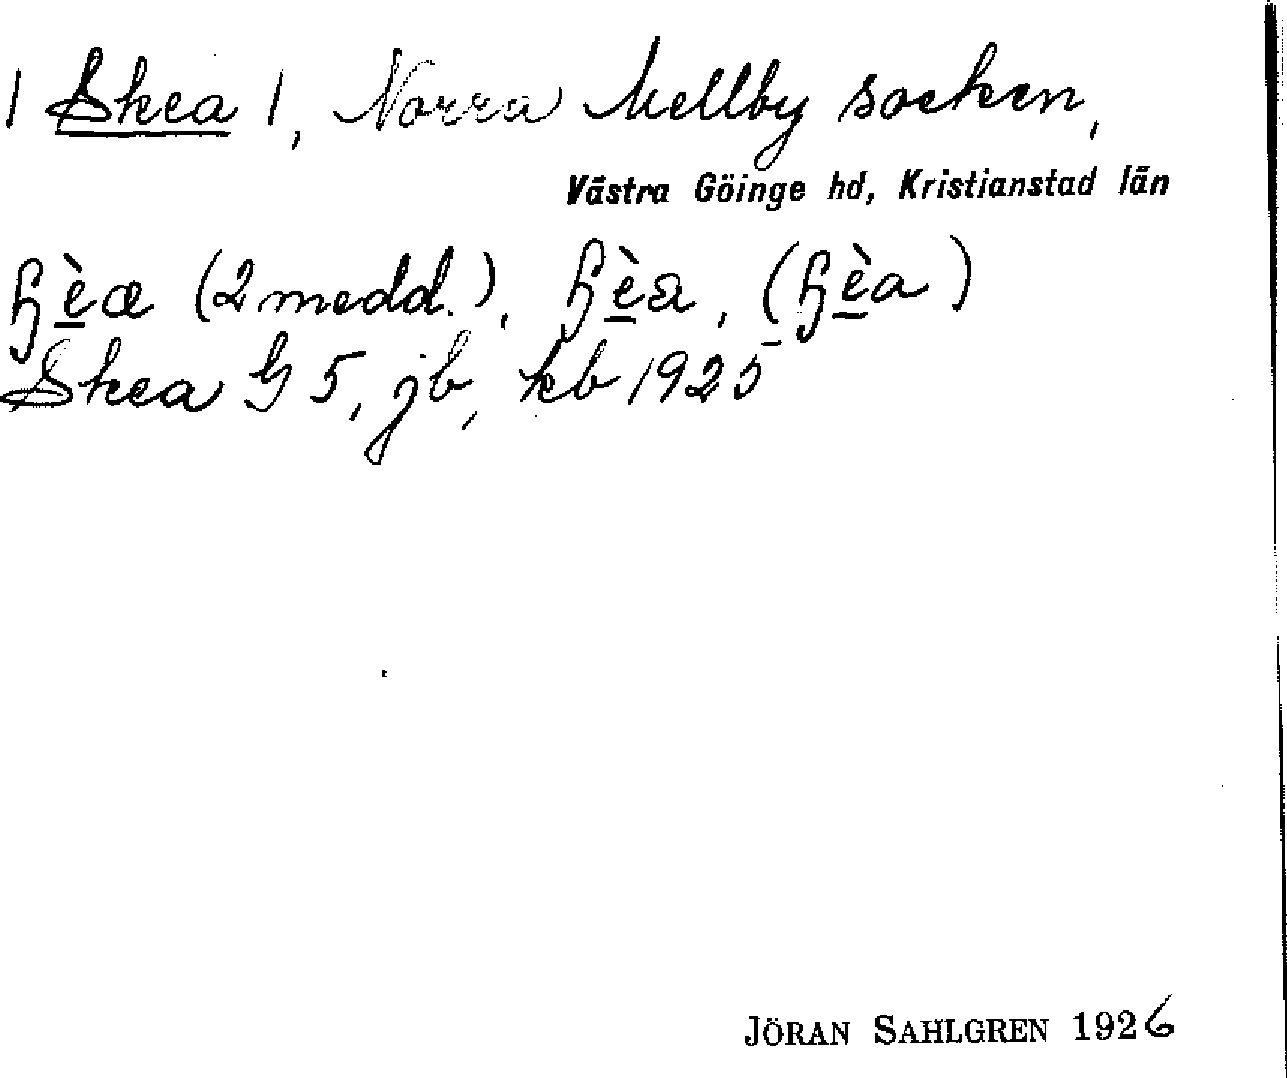 | Skea |, Norra Mellby socken,
Västra Göinge hd, Kristianstad län
ɧèæ (2 medd.), ɧèa, (ɧèa)
Skea G 5, jb, kb 1925
JÖRAN SAHLGREN 1926